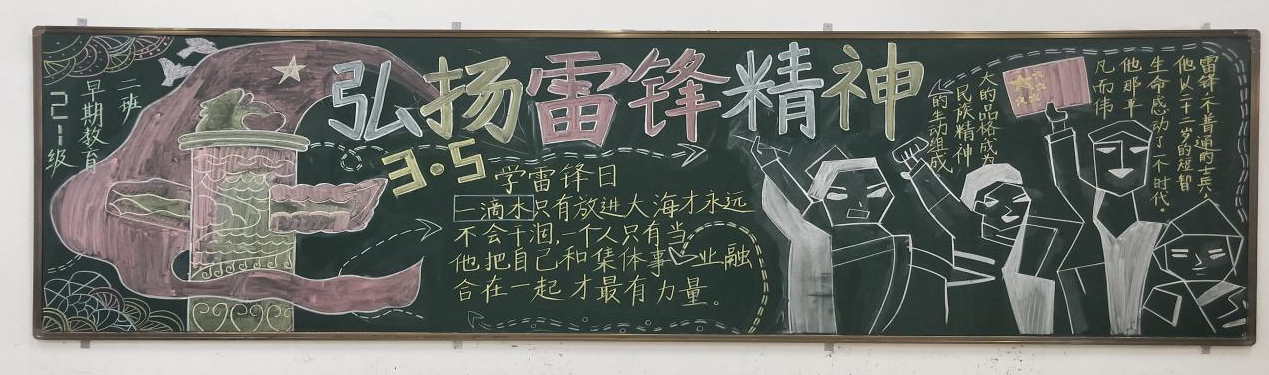 21级
早期教育
二班
弘扬雷锋精神
3·5
学雷锋日
一滴水只有放进大海才永远
不会干涸,一个人只有当
他把自己和集体事业融
合在一起才最有力量。
雷锋一个普通的士兵,
他以二十二岁的短暂
生命感动了一个时代。
他那平
凡而伟
大的品格成为
民族精神
的生动组成